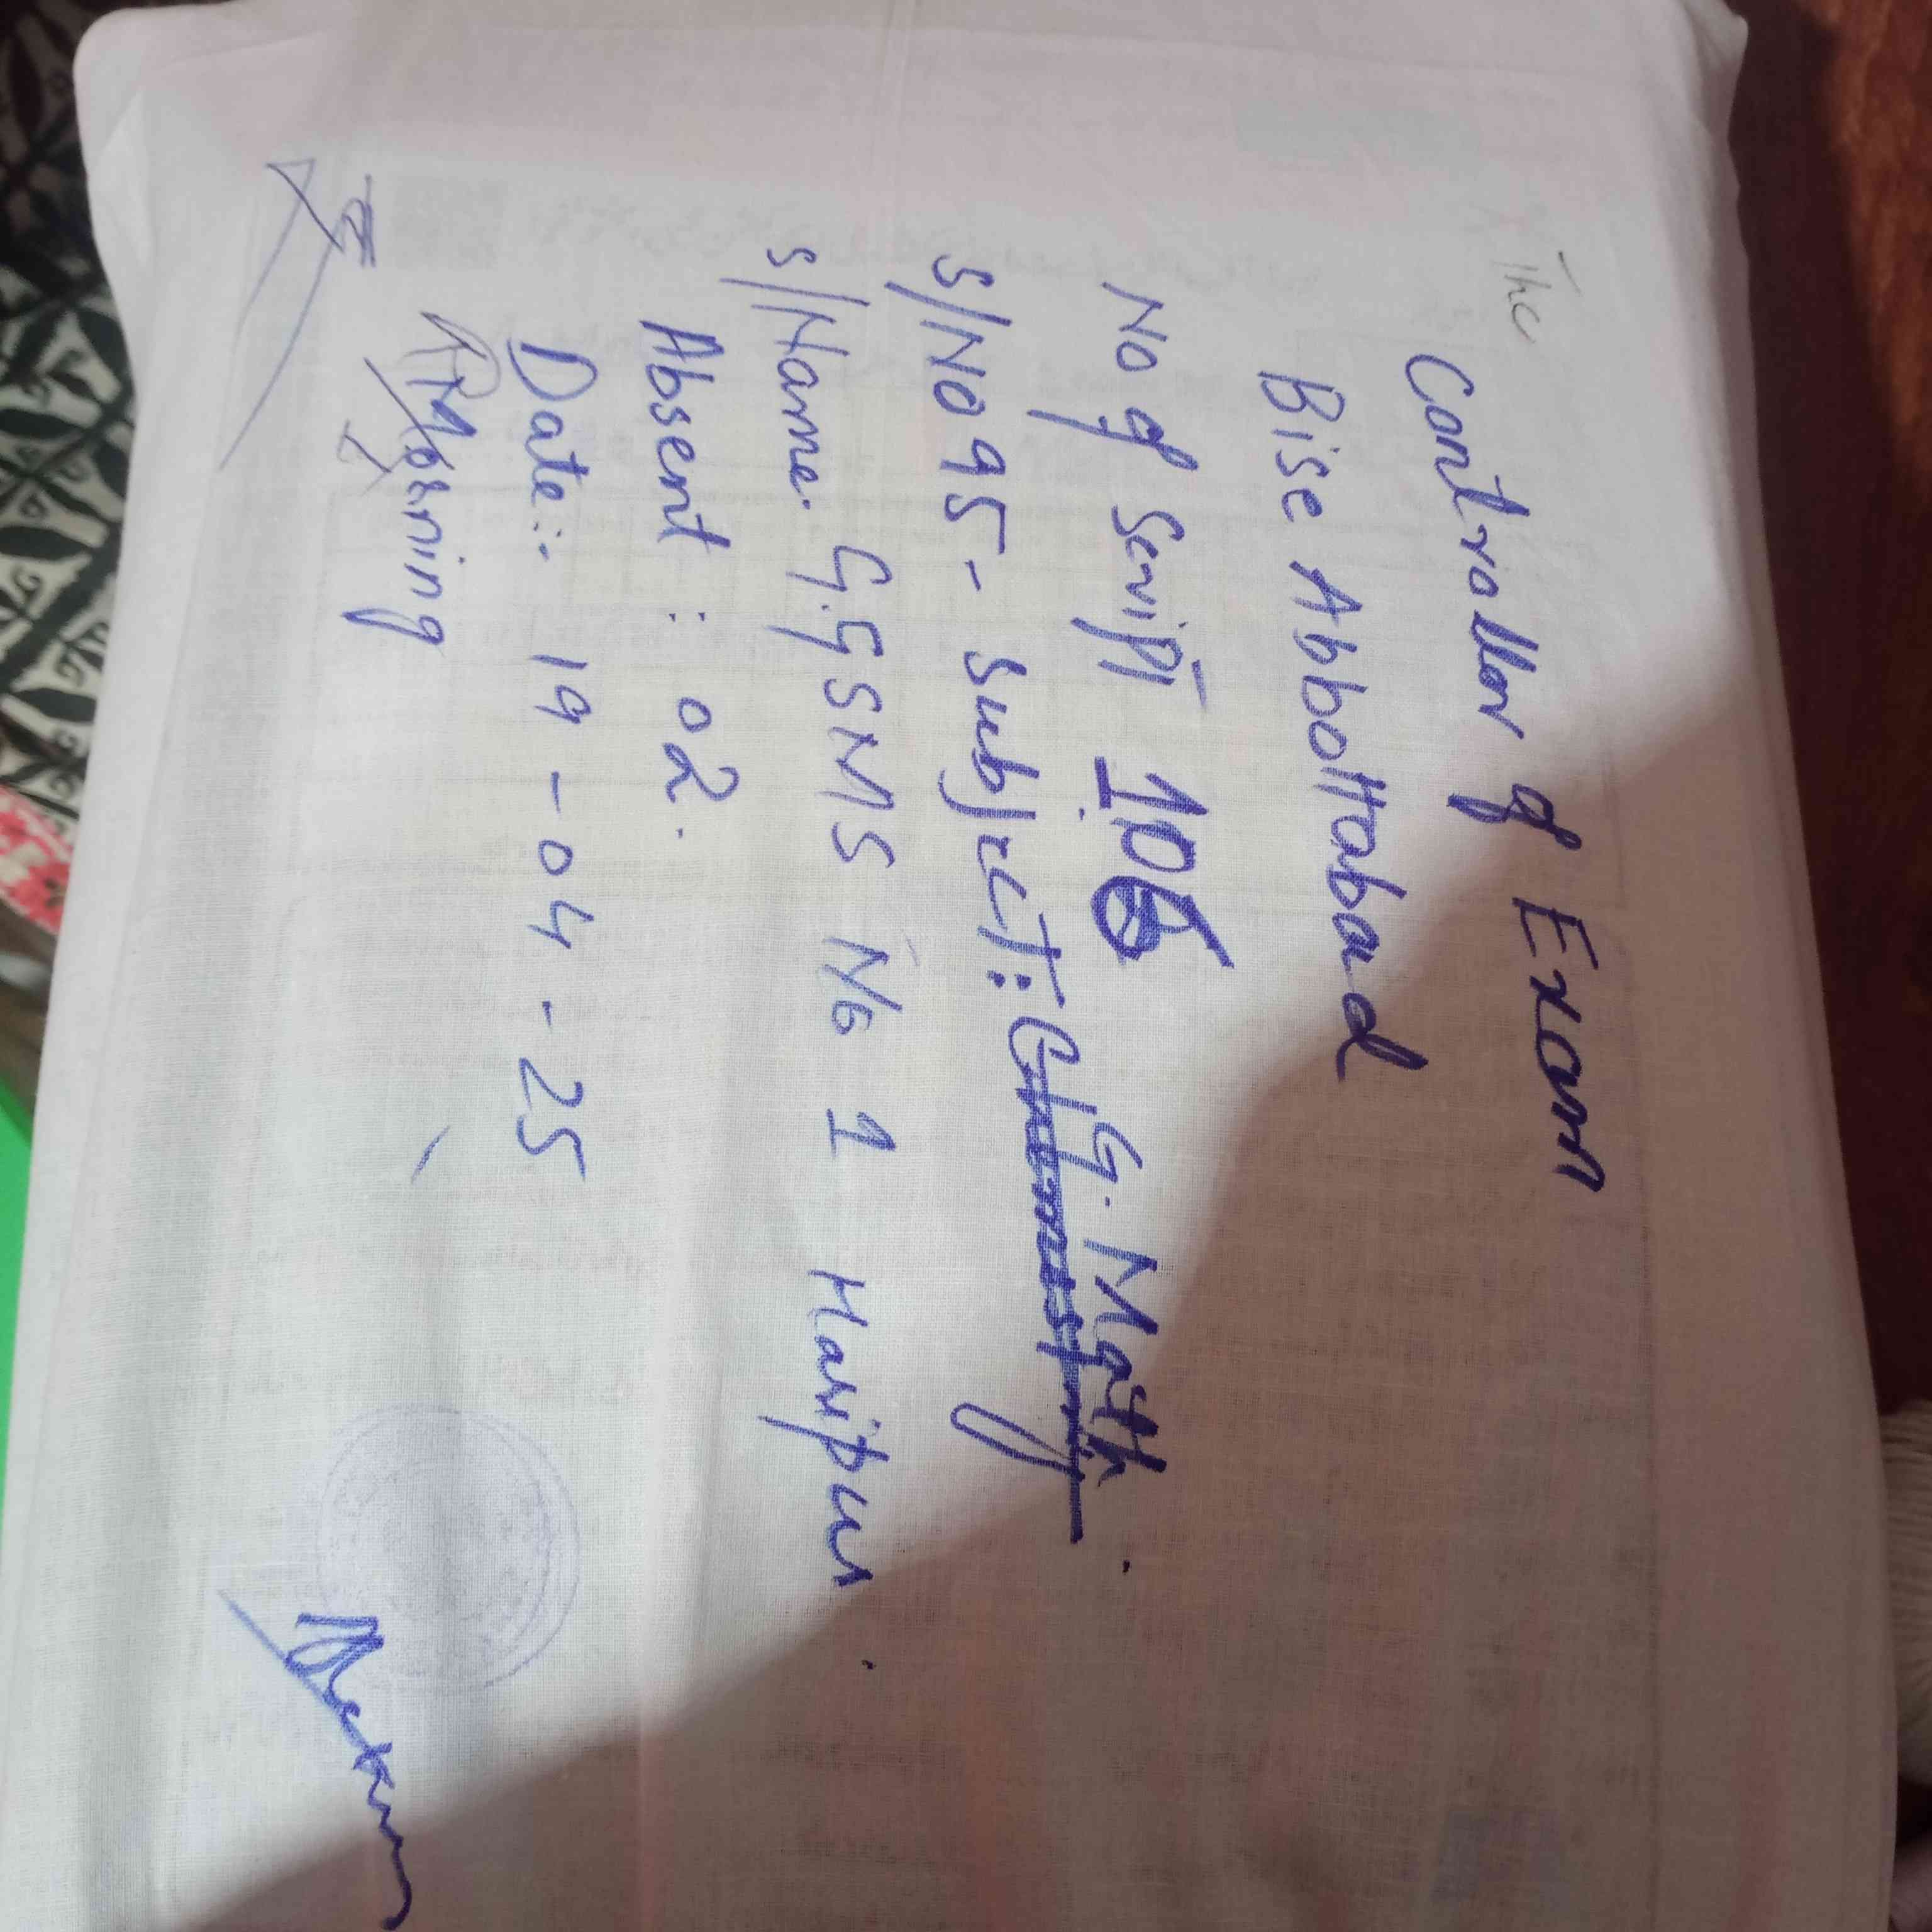 The
Controller of Exam
Bise Abbottabad
No of Script 106
S/No 95 - Subject: G. Math
S/Name. G.G.S.M.S No 1 Haripur
Absent : 02.
Date:- 19 - 04 - 25
Morning